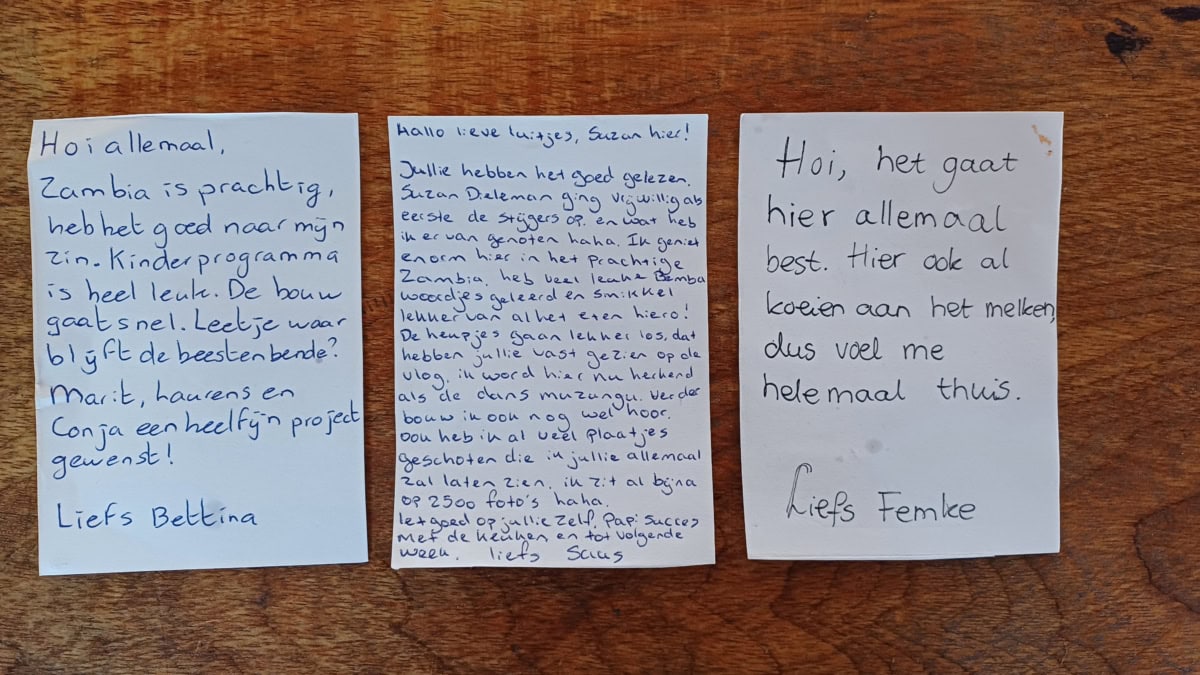 Hoi allemaal,
Zambia is prachtig,
heb het goed naar mijn
zin. Kinderprogramma
is heel leuk. De bouw
gaat snel. Leetje waar
blijft de beestenbende?
Marit, Laurens en
Conja een heel fijn project
gewenst!
Liefs Bettina
Hallo lieve luitjes, Suzan hier!
Jullie hebben het goed gelezen.
Suzan Dieleman ging vrijwillig als
eerste de stijgers op. en wat heb
ik er van genoten haha. Ik geniet
enorm hier in het prachtige
Zambia. heb veel leuke Bemba
woordjes geleerd en smikkel
lekker van al het eten hiero!
De heupjes gaan lekker los, dat
hebben jullie vast gezien op de
vlog. ik word hier nu herkend
als de dans muzungu. Verder
bouw ik ook nog wel hoor.
ook heb ik al veel plaatjes
geschoten die ik jullie allemaal
zal laten zien. ik zit al bijna
op 2500 foto's haha.
let goed op jullie zelf. Papi succes
met de keuken en tot volgende
week. liefs
Hoi, het gaat
hier allemaal
best. Hier ook al
koeien aan het melken,
dus voel me
helemaal thuis.
Liefs Femke